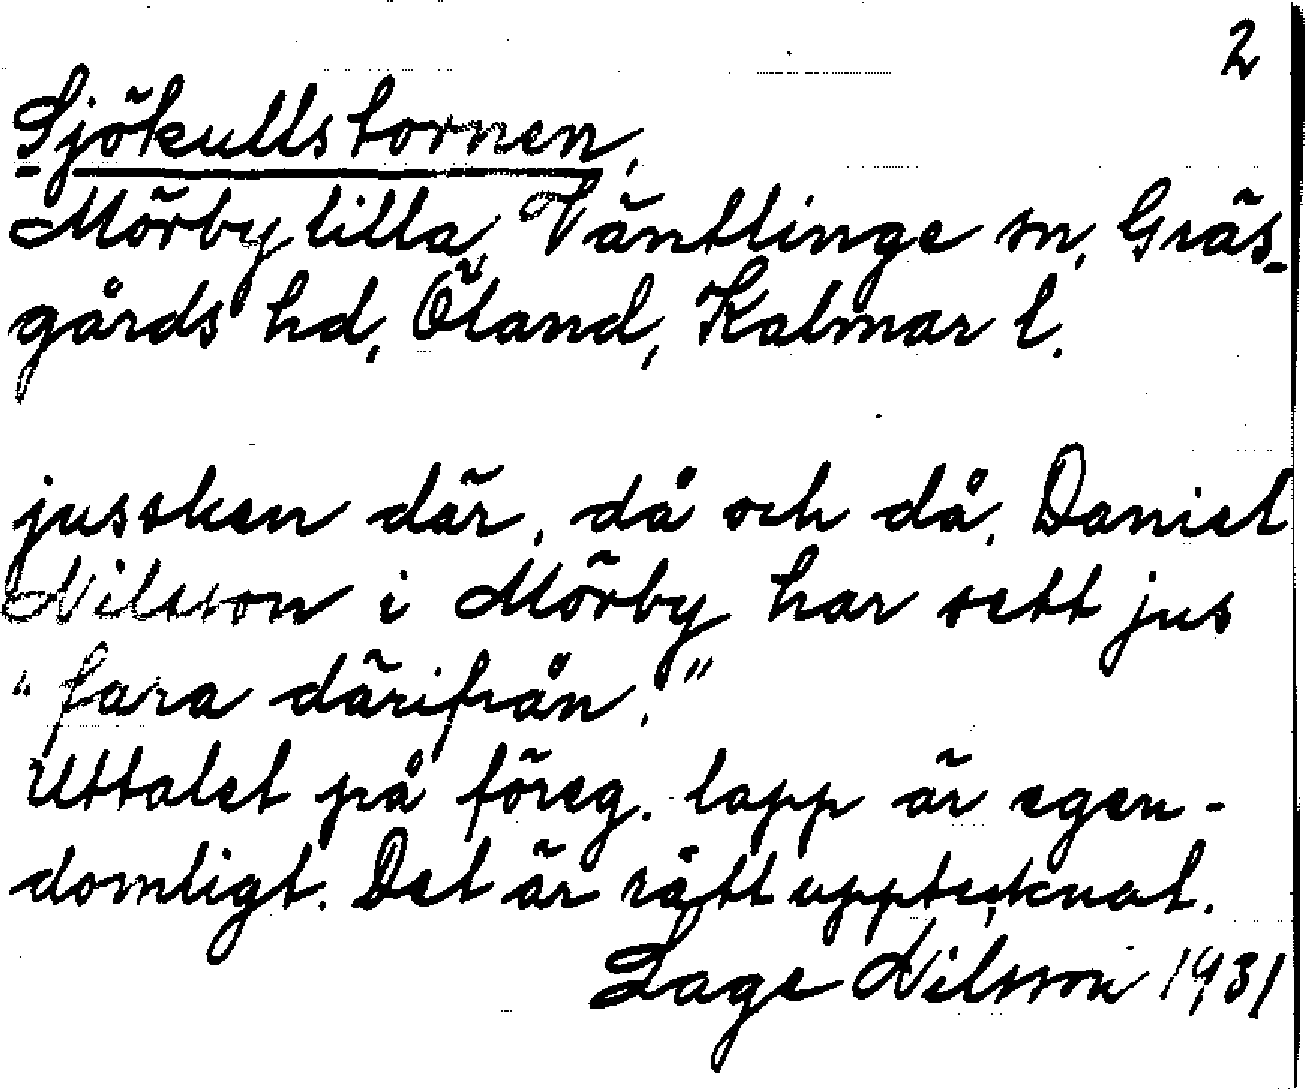 2
Sjökullstornen,
Mörby lilla, Väntlinge sn, Gräs-
gårds hd, Öland, Kalmar l.
jussken där, då och då. Daniel
Nilsson i Mörby har sett jus
"fara därifrån."
Uttalet på föreg. lapp är egen-
domligt. Det är rätt upptecknat.
Lage Nilsson 1931